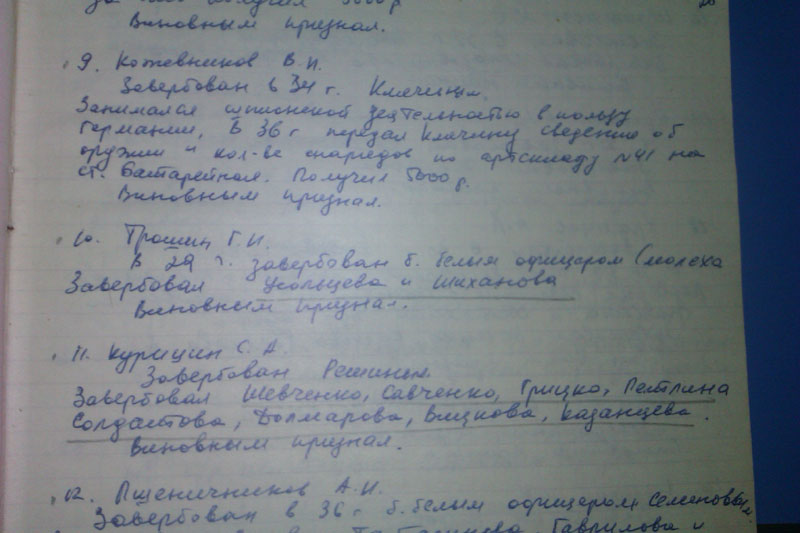 Виновным признал.
9. Кожевников В.И.
Завербован в 34 г. Клачиным
Занимался шпионской деятельностью в пользу
Германии, В 36 г передал Клачину сведения об
оружии и кол-ве снарядов по артскладу №41 на
ст. Батарейная. Получил 5000 р.
Виновным признал.
10. Трошин Г.И.
В 29 г. завербован б. белым офицером
Завербовал Усольцева и Шиханова
Виновным признал.
11. Курицин С. А.
Завербован Решиным
Завербовал Шевченко, Савченко, Грицко, Петлина
Солдатова, Долмарова, Влизкова, Казанцева.
Виновным признал.
12. Пшеничников А.И.
Завербован в 36 г б. белым офицером Семеновым
Гаврилова и